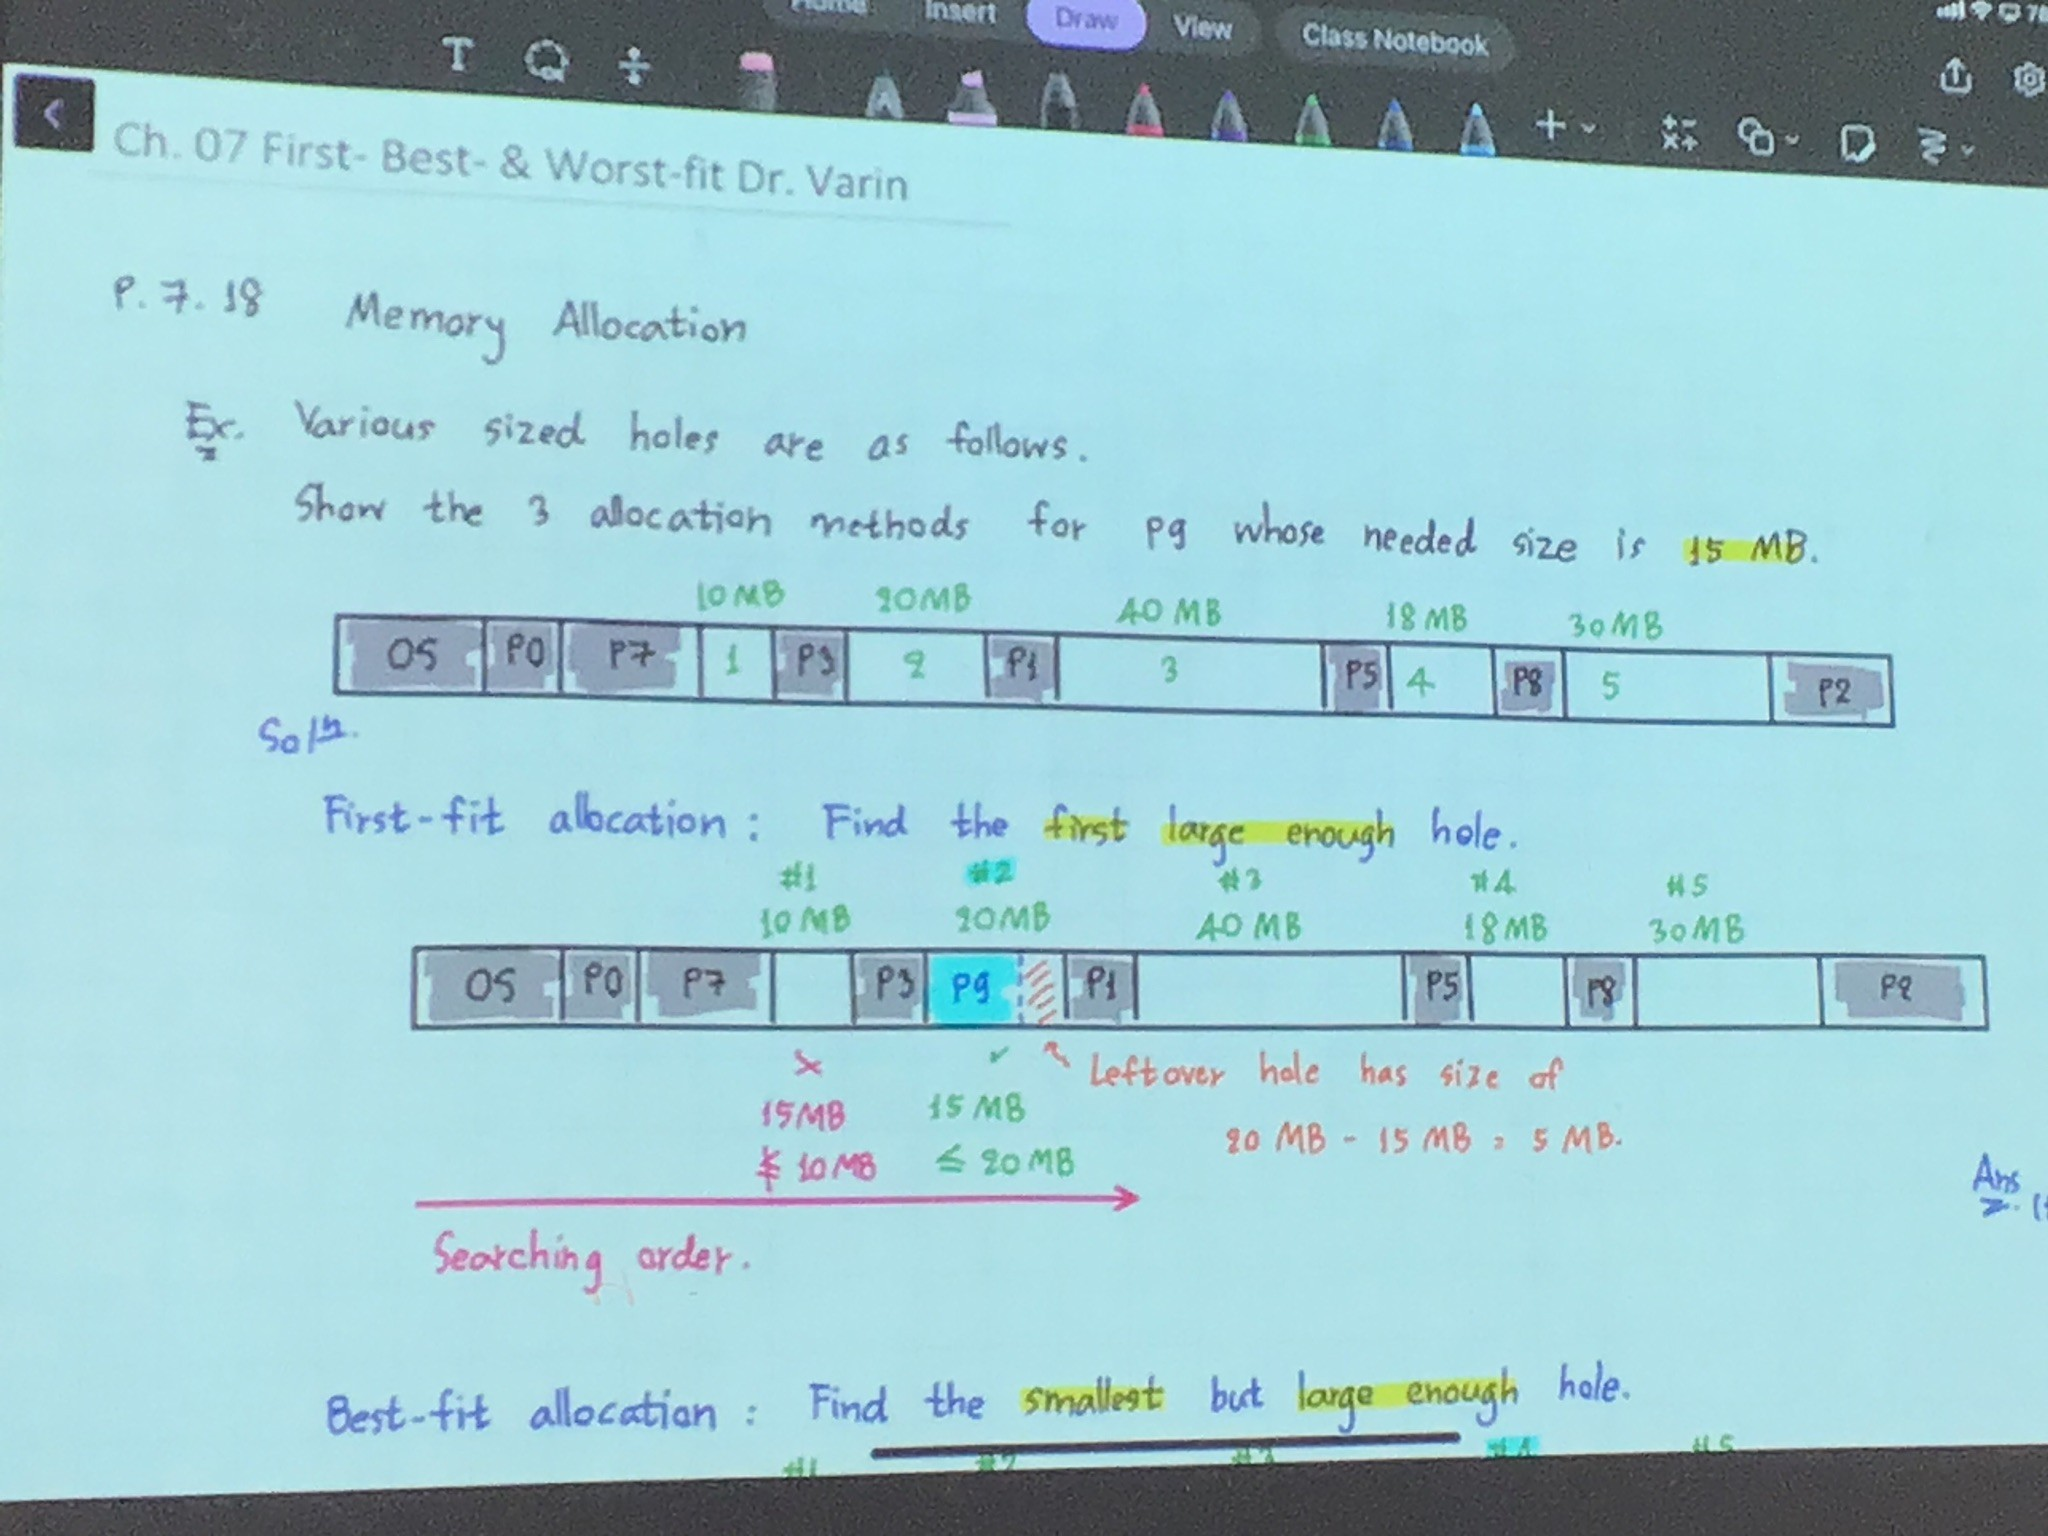 Home Insert Draw View Class Notebook
Ch. 07 First- Best- & Worst-fit Dr. Varin
P. 7. 18 Memory Allocation
Ex. Various sized holes are as follows.
Show the 3 allocation methods for P9 whose needed size is 15 MB.
10 MB 20 MB 40 MB 18 MB 30 MB
OS P0 P7 1 P3 2 P1 3 P5 4 P8 5 P2
Soln.
First-fit allocation : Find the first large enough hole.
#1 #2 #3 #4 #5
10 MB 20 MB 40 MB 18 MB 30 MB
OS P0 P7 P3 P9 P1 P5 P8 P2
× ✓ Leftover hole has size of
15 MB 15 MB 20 MB - 15 MB = 5 MB.
≰ 10 MB ≤ 20 MB
Ans
Searching order.
Best-fit allocation : Find the smallest but large enough hole.
#1 #2 #3 #4 #5